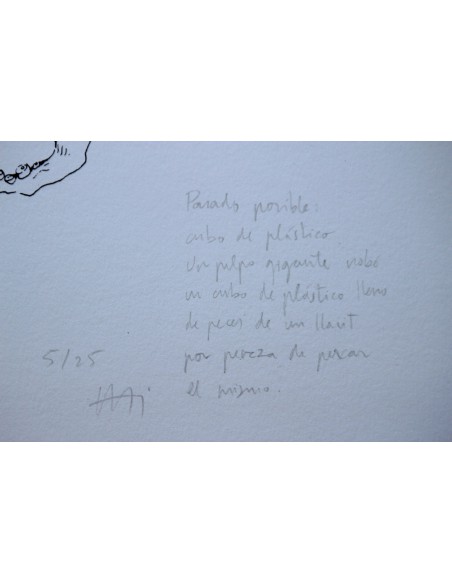 Pasado posible:
cubo de plástico.
Un pulpo gigante robó
un cubo de plástico lleno
de peces de un llaut
por pereza de pescar
el mismo.
5/25